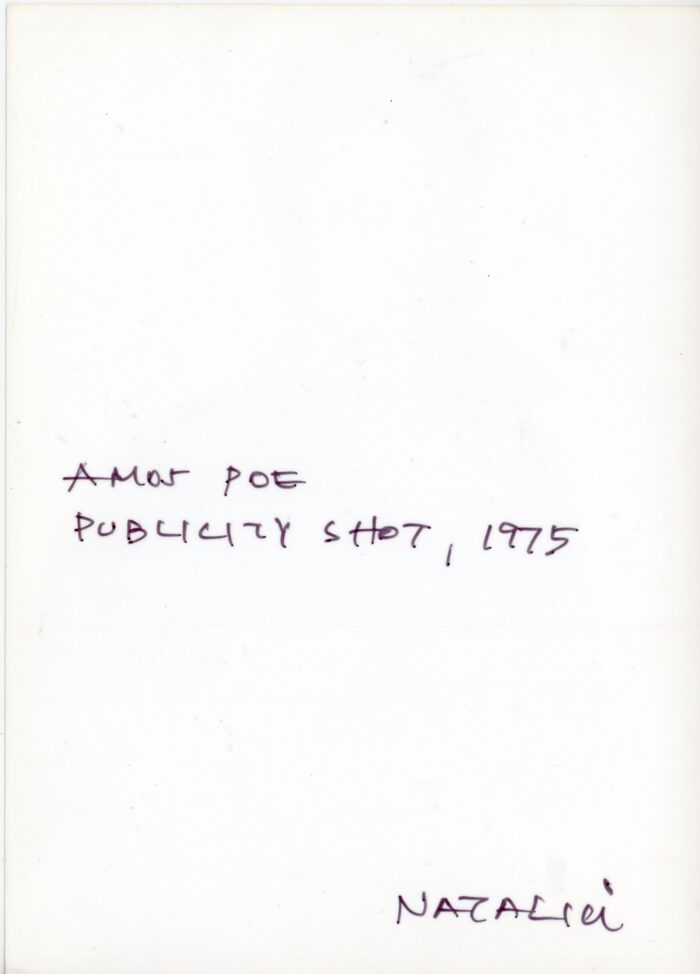 AMOS POE
PUBLICITY SHOT, 1975
NATALICi